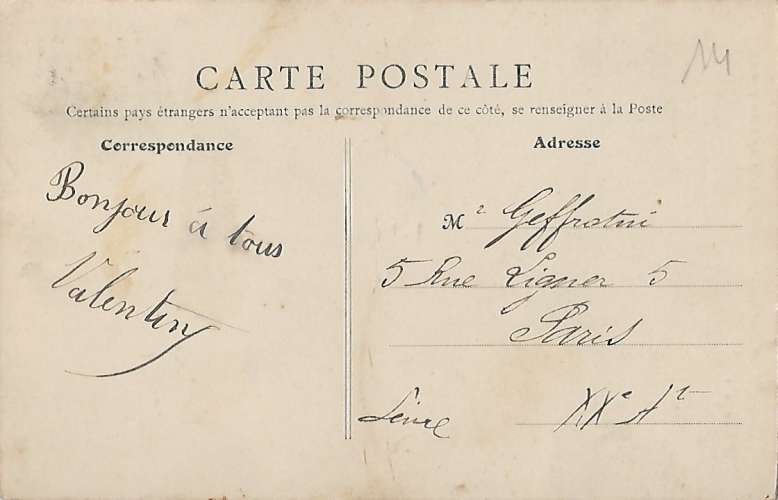 14
CARTE POSTALE
Certains pays étrangers n'acceptant pas la correspondance de ce côté, se renseigner à la Poste
Correspondance
Bonjour à tous
Valentin
Adresse
Mr
5 Rue Ligner 5
Paris
XXe At